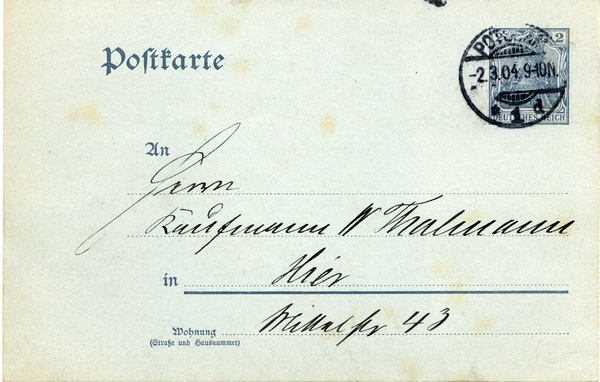 Postkarte
2
DEUTSCHES REICH
POTSDAM
-2.3.04. 9-10N.
* 1 d
An
Herrn
Kaufmann W Thalmann
in Hier
Mittelstr 43
Wohnung
(Straße und Hausnummer)